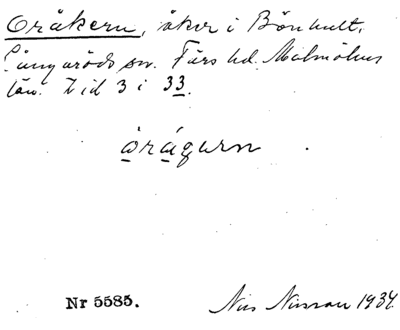 Oråkern, åker i Bönhult,
Långaröds sn. Färs hd. Malmöhus
län. L id 3 i 33.
åràgərn
Nr 5585.
Nils Nilsson 1934.